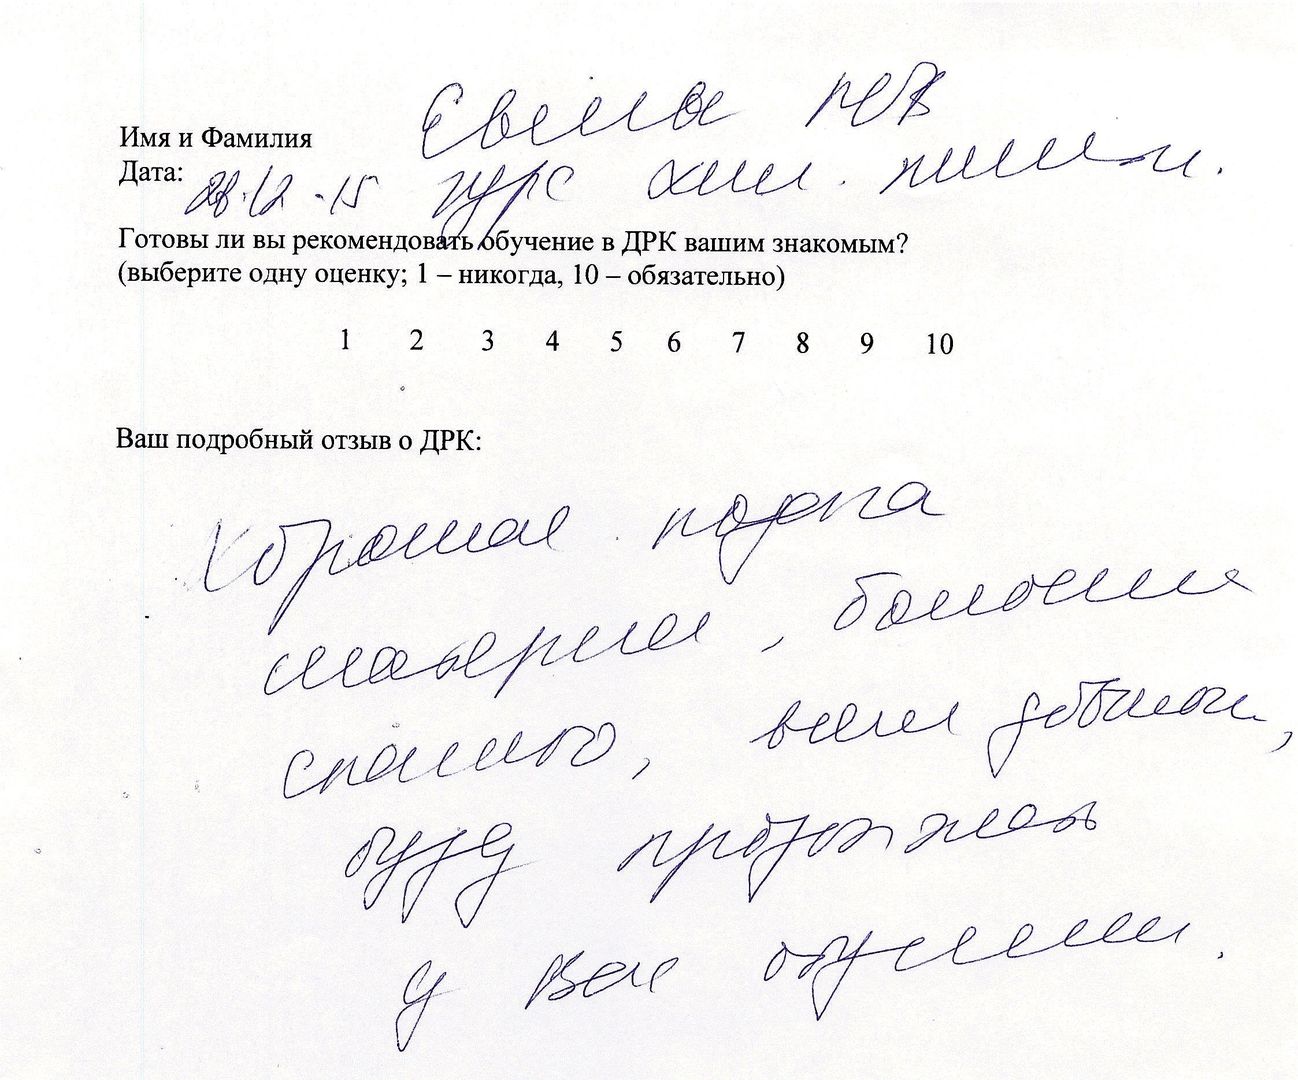 Имя и Фамилия
Дата: 28.12.15 курс хим.
Готовы ли вы рекомендовать обучение в ДРК вашим знакомым?
(выберите одну оценку; 1 – никогда, 10 – обязательно)
1 2 3 4 5 6 7 8 9 10
Ваш подробный отзыв о ДРК:
Хорошая подача
материала, большое
спасибо, всем довольна,
буду продолжать
у Вас обучение.